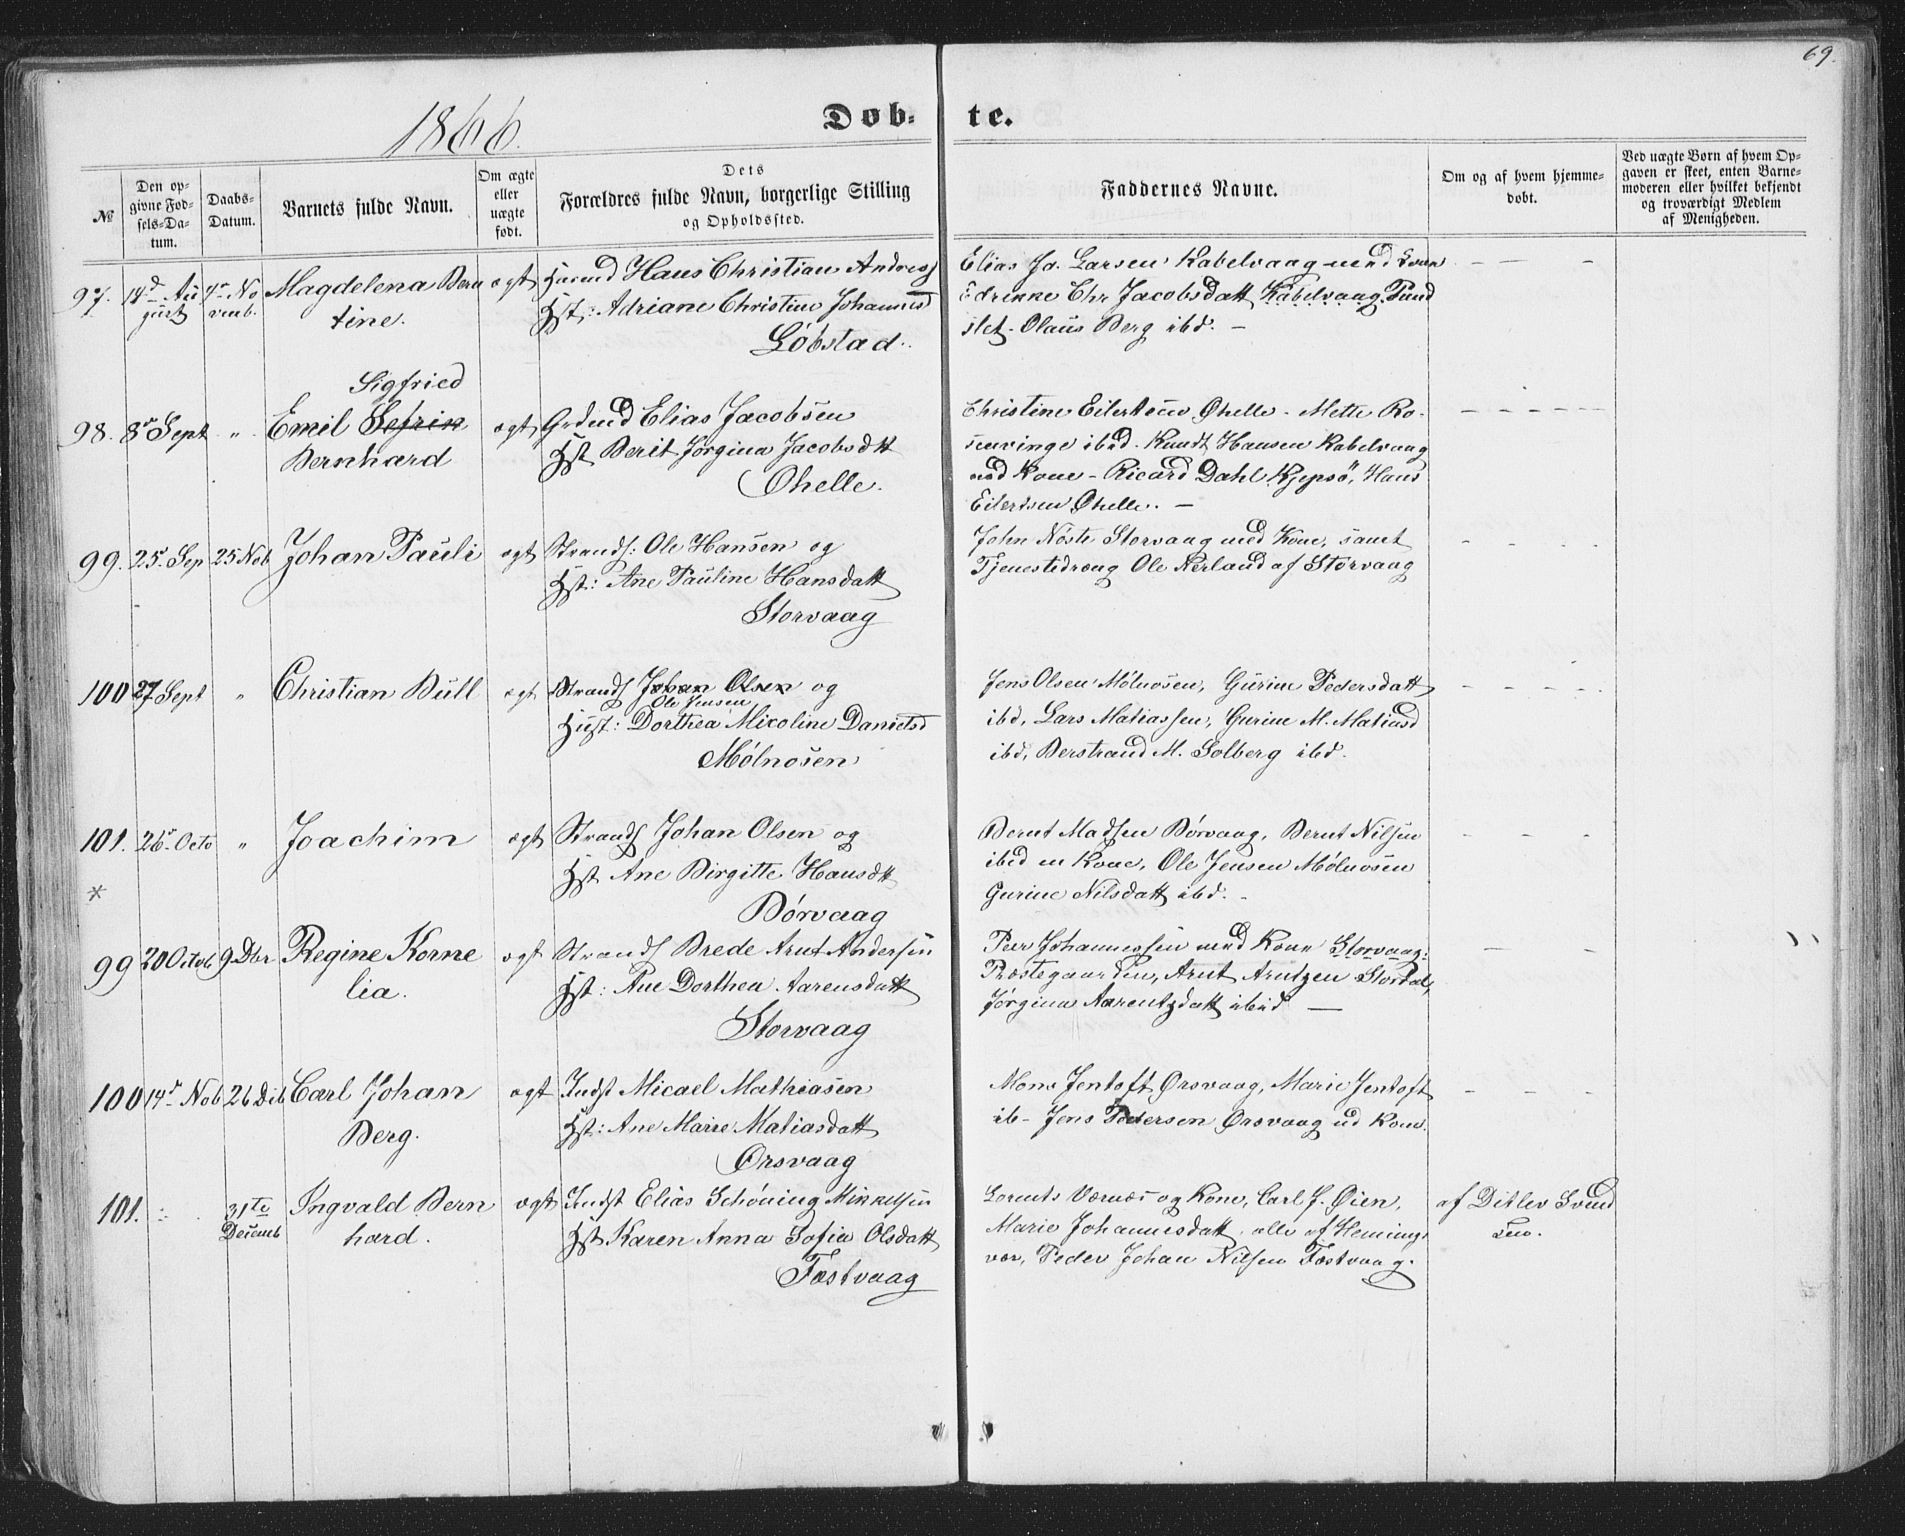 69.
1866.
Døb- te.
№
Den op-
givne Fød-
sels-Da-
tum.
Daabs-
Datum.
Barnets fulde Navn.
Om ægte
eller
uægte
født.
Dets
Forældres fulde Navn, borgerlige Stilling
og Opholdssted.
Faddernes Navne.
Om og af hvem hjemme-
døbt.
Ved uægte Børn af hvem Op-
gaven er skeet, enten Barne-
moderen eller hvilket bekjendt
og troværdigt Medlem
af Menigheden.
97. 14d Au
gust
4de No
vmb.
Magdelena Bern
tine.
ægt
Huusmd Hans Christian Andress
Hst: Adriane Christine Johannesd
Løbstad.
Elias Ja. Larsen Kabelvaag med Kone
Edrikke Chr Jacobsdatt Kabelvaag
Olaus Berg ibd. –
98. 8de Sept "
Sigfried
Emil Sefrin
Bernhard
ægt
Grdmd Elias Jacobsen
Hst Berit Jørgina Jacobsdtt
Ohelle.
Christine Eilertsen Øhelle – Mette Ro-
senvinge ibid. Knudt Hansen Kabelvaag
med Kone – Ricard Dahl Kjepsø, Hans
Eilertsen Øhelle. –
99. 25. Sep 25 Nob
Johan Pauli
ægt
Strands: Ole Hansen og
Hst: Ane Pauline Hansdatt
Storvaag
John Nøste Storvaag med Kone, samt
Tjenestedreng Ole Nerland af Storvaag
100 27 Sept "
Christian Bull
ægt
Strands Johan Olsen og
Ole Jensen
Hust: Dorthea Nicoline Danielsd
Mølnosen
Jens Olsen Mølnosen, Gurine Pedersdatt
ibd, Lars Matiassen, Gurine M. Matiasd
ibd, Berstrand M. Solberg ibd.
101. 26. Octo "
Joachim
ægt
Strands Johan Olsen og
Hst Ane Birgitte Hansdtt
Børvaag
Bernt Madsen Børvaag, Bernt Nilsen
ibid m Kone, Ole Jensen Mølnosen
Gurine Nilsdatt ibd. –
*
99 20 Octob 9 Dbr
Regine Korne
lia.
ægt
Strands Brede Arnt Andersen
Hst: Ane Dorthea Aarensdatt
Storvaag
Peer Johannessen med Kone Storvaag:
Præstegaarden, Arnt Arntzen Stordal,
Jørgina Aarentzdatt ibid –
100 14d Nob 26 Dcb
Carl Johan
Berg.
ægt
Indst Micael Mathiasen
Hst: Ane Marie Matiasdatt
Ørsvaag
Mons Jentoft Ørsvaag, Marie Jentoft
ib – Jens Pedersen Ørsvaag md Kone.
101. 31te
Decemb
Ingvald Bern
hard.
ægt
Indst Elias Schöning Mikkelsen
Hst Karen Anna Sofia Olsdatt
Fæstvaag
Lorents Værnæs og Kone, Carl J. Øien,
Marie Johannesdatt, alle af Hennings
vær, Peder Johan Nilsen Fæstvaag.
af Ditlev Svend
sen.